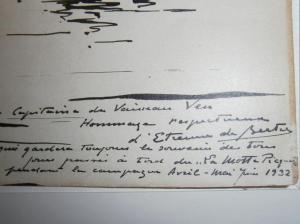 Capitaine de Vaisseau Ven
Hommage respectueux
d'Etienne de
qui gardera toujours le souvenir des bons
jours passés à bord du "La Motte Picquet
pendant la campagne Avril - Mai Juin 1932